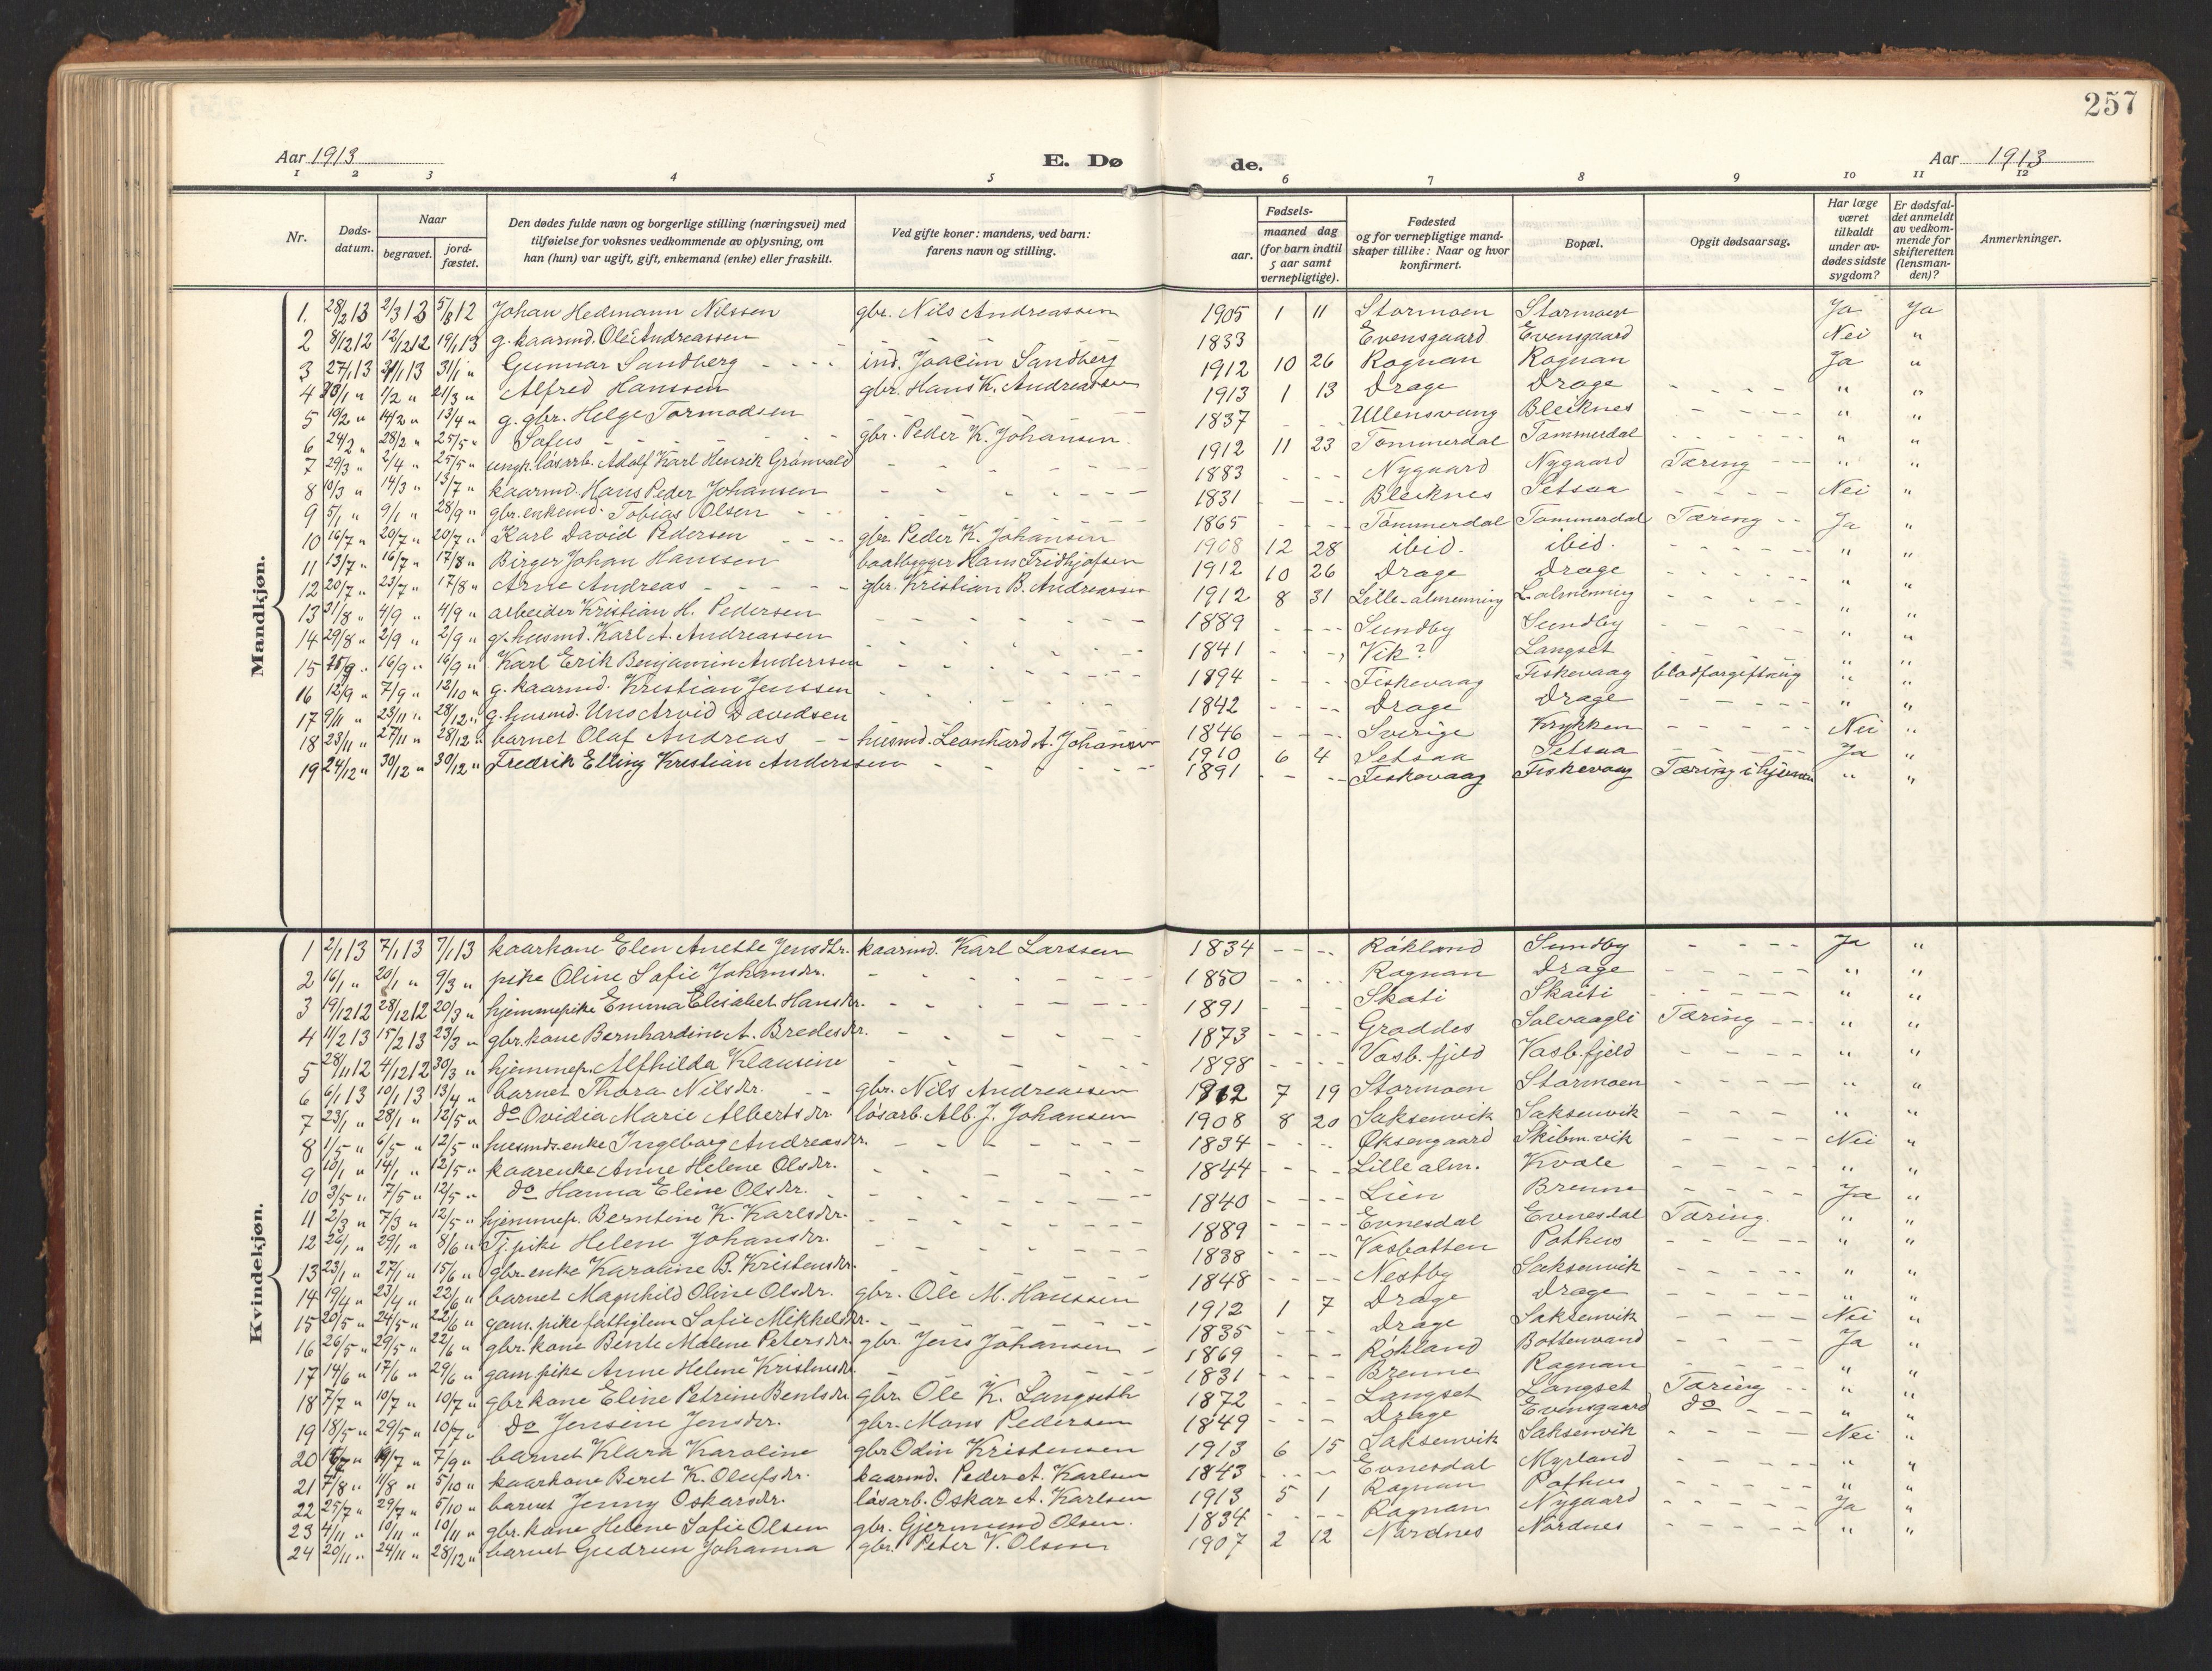 257
Aar 1913 E. Døde. Aar 1913
1 2 3 4 5 6 7 8 9 10 11 12
Nr. Døds-datum. Naar begravet. jord-fæstet. Den dødes fulde navn og borgerlige stilling (næringsvei) med tilføielse for voksnes vedkommende av oplysning, om han (hun) var ugift, gift, enkemand (enke) eller fraskilt. Ved gifte koner: mandens, ved barn: farens navn og stilling. Fødsels- aar. maaned dag (for barn indtil 5 aar samt vernepligtige). Fødested og for vernepligtige mand-skaper tillike: Naar og hvor konfirmert. Bopæl. Opgit dødsaarsag. Har læge været tilkaldt under av-dødes sidste sygdom? Er dødsfal-det anmeldt av vedkom-mende for skifteretten (lensman-den)? Anmerkninger.
Mandkjøn.
1. 28/2 13 2/3 13 5/8 12 Johan Hedmann Nilssen gbr. Nils Andreassen 1905 1 11 Stormoen Stormoen Ja Ja
2 8/12 12 12/12 12 19/1 13 g. kaarmd. Ole Andreassen 1833 Evensgaard Evensgaard Nei "
3 27/1 13 31/1 " Gunnar Sandberg - - - ind. Joacim Sandberg 1912 10 26 Rognan Rognan Ja "
4 1/2 " 21/3 " Alfred Hanssen gbr. Hans K. Andreassen 1913 1 13 Drage Drage - - - - " "
5 10/2 " 14/2 " 13/4 " g. gbr. Helge Tormodsen - - 1837 - - - Ullensvang Bleiknes - - - - " "
6 24/2 " 28/2 " 25/5 " Sofus - - - - gbr. Peder K. Johansen. 1912 11 23 Tømmerdal Tømmerdal - - - - " "
7 29/3 " 2/4 " 25/5 " ungk. løsarb. Adolf Karl Henrik Grønvald - - - - 1883 - - - Nygaard Nygaard Tæring - - " "
8 10/3 " 14/3 " 13/7 " kaarmd. Hans Peder Johansen - - - - 1831 - - - Bleiknes Setsaa - - - - Nei "
9 5/1 " 9/1 " 28/9 " gbr. enkemd. Tobias Olsen - - - - 1865 - - - Tømmerdal Tømmerdal Tæring - - Ja "
10 16/7 " 20/7 " 20/7 " Karl David Pedersen - - - gbr. Peder K. Johansen 1908 12 28 ibid. ibid. - - - - " "
11 13/7 " 16/7 " 17/8 " Birger Johan Hanssen baatbygger Hans Fridthjofsen 1912 10 26 Drage Drage - - - - " "
12 20/7 " 23/7 " 17/8 " Arne Andreas - - - - gbr. Kristian B. Andreassen 1912 8 31 Lille-almenning L. almenning - - - - " "
13 31/8 " 4/9 " 4/9 " arbeider Kristian H. Pedersen - - - - 1889 - - - Sundby Sundby " "
14 29/8 " 2/9 " 2/9 " g. husmd. Karl A. Andreassen - - - - 1841 - - - Vik? Langset - - - - " "
15 " 16/9 " 16/9 " Karl Erik Benjamin Anderssen - - - - 1894 - - - Fiskevaag Fiskevaag blodforgiftning " "
16 12/9 " 7/9 " 12/10 " g. kaarmd. Kristian Jenssen - - - - 1842 - - - Drage Drage - - - - " "
17 9/11 " 23/11 " 28/12 " g. husmd. Uno Arvid Davidsen 1846 - - - Sverige Krykken - - - - Nei "
18 23/11 " 27/11 " 28/12 " barnet Olaf Andreas - - husmd. Leonhard A. Johansen 1910 6 4 Setsaa Setsaa - - - - Ja "
19 24/12 " 30/12 " 30/12 " Fredrik Elling Kristian Anderssen - - - - 1891 - - - Fiskevaag Fiskevaag Tæring i hjernen " "
Kvindekjøn.
1 2/1 13 7/1 13 7/1 13 kaarkone Elen Anette Jensdtr. kaarmd. Karl Larssen 1834 - - - Røkland Sundby - - - - Ja "
2 16/1 " 20/1 " 9/3 " pike Oline Sofie Johansdtr. - - - - 1850 - - - Rognan Drage - - - - " "
3 19/12 12 28/12 12 20/3 " hjemmepike Emma Elisabet Hansdtr. - - - - 1891 - - - Skaiti Skaiti - - - - " "
4 11/2 13 15/2 13 23/3 " gbr. kone Bernhardine A. Bredesdtr. - - - - 1873 - - - Graddes Solvaagli Tæring - - - " "
5 28/11 12 4/12 12 30/3 " hjemmep. Alfhilda Klausine - - - - 1898 - - - Vasb. fjeld Vasb. fjeld - - - - " "
6 6/1 13 10/1 13 13/4 " barnet Thora Nilsdtr. - - gbr. Nils Andreassen 1912 7 19 Stormoen Stormoen - - - - " "
7 23/1 " 28/1 " 12/5 " do Ovidia Marie Albertsdtr. løsarb. Alb. J. Johansen 1908 8 20 Saksenvik Saksenvik - - - - " "
8 1/5 " 6/5 " 12/5 " husmds. enke Ingeborg Andreasdtr. - - - - 1834 - - - Øksengaard Skibm. vik - - - - Nei "
9 10/1 " 14/1 " 12/5 " kaarenke Anne Helene Olsdtr. - - - - 1844 - - - Lille alm. Kvale - - - - " "
10 3/5 " 7/5 " 12/5 " do Hanna Eline Olsdtr. - - - - 1840 - - - Lien Brenne - - - - Ja "
11 2/3 " 7/3 " 12/5 " hjemmep. Berntine K. Karlsdtr. - - - - 1889 - - - Evnesdal Evnesdal Tæring. " "
12 26/1 " 29/1 " 8/6 " Tj. pike Helene Johansdtr. - - - - 1838 - - - Vasbotten Pothus - - - - " "
13 23/1 " 27/1 " 15/6 " gbr. enke Karoline B. Kristensdtr. - - - - 1848 - - - Nestby Saksenvik - - - - " "
14 19/4 " 23/4 " 22/6 " barnet Magnhild Oline Olsdtr. gbr. Ole M. Hanssen 1912 1 7 Drage Drage - - - - " "
15 20/5 " 24/5 " 22/6 " gam. pike fattiglem Sofie Mikkelsdtr. - - - - 1835 - - - Drage Saksenvik - - - - Nei "
16 26/5 " 29/5 " 22/6 " gbr. kone Bente Malene Petersdtr. gbr. Jens Johansen - 1869 - - - Røkland Bottenvand - - - - Ja "
17 14/6 " 17/6 " 29/6 " gam. pike Anne Helene Kristensdtr. - - - - 1831 - - - Brenne Rognan - - - - " "
18 7/7 " 10/7 " 10/7 " gbr kone Eline Petrine Bentsdtr. gbr. Ole K. Langseth 1872 - - - Langset Langset Tæring - - " "
19 18/5 " 29/5 " 10/7 " do Jensine Jensdtr. gbr. Mons Pedersen 1849 - - - Drage Evensgaard do - - - " "
20 " 19/7 " 7/9 " barnet Klara Karoline gbr. Odin Kristensen 1913 6 15 Saksenvik Saksenvik - - - - Nei "
21 7/8 " 11/8 " 5/10 " kaarkone Beret K. Olufsdtr. kaarmd. Peder A. Karlsen 1843 - - - Evnesdal Myrland - - - - " "
22 25/7 " 29/7 " 5/10 " barnet Jenny Oskarsdtr. løsarb. Oskar A. Karlsen 1913 5 1 Rognan Pothus - - - - " "
23 4/11 " 10/11 " 10/11 " gbr. kone Helene Sofie Olsen gbr. Gjermund Olsen. 1834 - - - Rognan Nygaard - - - - Ja "
24 20/11 " 24/11 " 28/12 " barnet Gudrun Johanna gbr. Peter V. Olsen 1907 2 12 Nordnes Nordnes - - - - " "